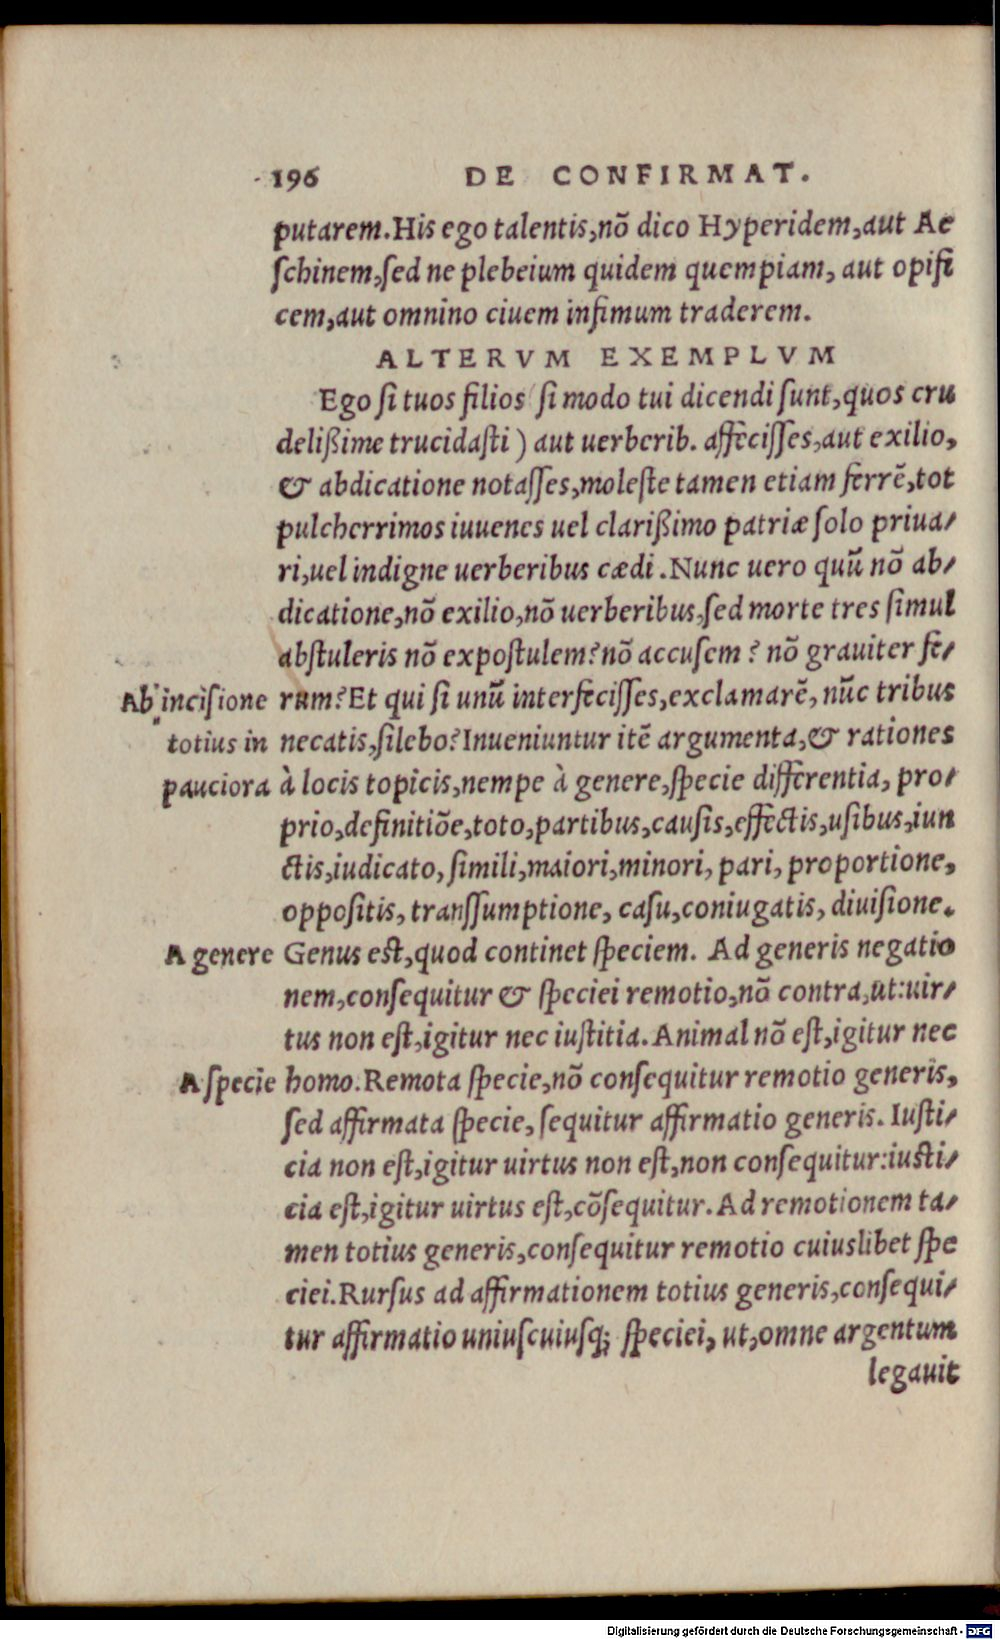 196 DE CONFIRMAT.
putarem.His ego talentis,nō dico Hyperidem,aut Ae
ſchinem,ſed ne plebeium quidem quempiam, aut opifi
cem,aut omnino ciuem infimum traderem.
ALTERVM EXEMPLVM
Ego ſi tuos filios (ſi modo tui dicendi ſunt,quos cru
delißime trucidaſti) aut uerberib. affeciſſes,aut exilio,
& abdicatione notaſſes,moleſte tamen etiam ferrē,tot
pulcherrimos iuuenes uel clarißimo patriæ ſolo priua-
ri,uel indigne uerberibus cædi.Nunc uero quū nō ab-
dicatione,nō exilio,nō uerberibus,ſed morte tres ſimul
abſtuleris nō expoſtulem?nō accuſem? nō grauiter fe-
Ab inciſione rum?Et qui ſi unū interfeciſſes,exclamarē, nūc tribus
totius in necatis,ſilebo?Inueniuntur itē argumenta,& rationes
pauciora à locis topicis,nempe à genere,ſpecie differentia, pro-
prio,definitiōe,toto,partibus,cauſis,effectis,uſibus,iun
ctis,iudicato, ſimili,maiori,minori, pari, proportione,
oppoſitis, tranſſumptione, caſu,coniugatis, diuiſione.
A genere Genus eſt,quod continet ſpeciem. Ad generis negatio
nem,conſequitur & ſpeciei remotio,nō contra,ut:uir-
tus non eſt,igitur nec iuſtitia.Animal nō eſt,igitur nec
A ſpecie homo.Remota ſpecie,nō conſequitur remotio generis,
ſed affirmata ſpecie, ſequitur affirmatio generis. Iuſti-
cia non eſt,igitur uirtus non eſt,non conſequitur:iuſti-
cia eſt,igitur uirtus eſt,cōſequitur.Ad remotionem ta-
men totius generis,conſequitur remotio cuiuslibet ſpe
ciei.Rurſus ad affirmationem totius generis,conſequi-
tur affirmatio uniuſcuiuſq; ſpeciei, ut,omne argentum
legauit
Digitalisierung gefördert durch die Deutsche Forschungsgemeinschaft - DFG